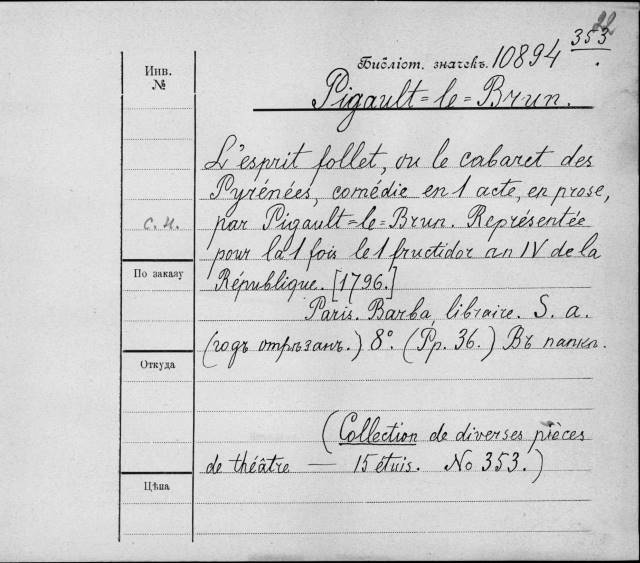 22
353
Библіот. значекъ. 10894
Инв.
№
Pigault=le=Brun.
L'esprit follet, ou le cabaret des
Pyrénées, comédie en 1 acte, en prose,
с. н.
par Pigault=le=Brun. Représentée
pour la 1 fois le 1 fructidor an IV de la
По заказу
République. [1796.]
Paris. Barba, libraire. S. a.
(годъ отрѣзанъ.) 8°. (Pp. 36.) Въ папкѣ.
Откуда
(Collection de diverses pièces
de théâtre — 15 étuis. No 353.)
Цѣна